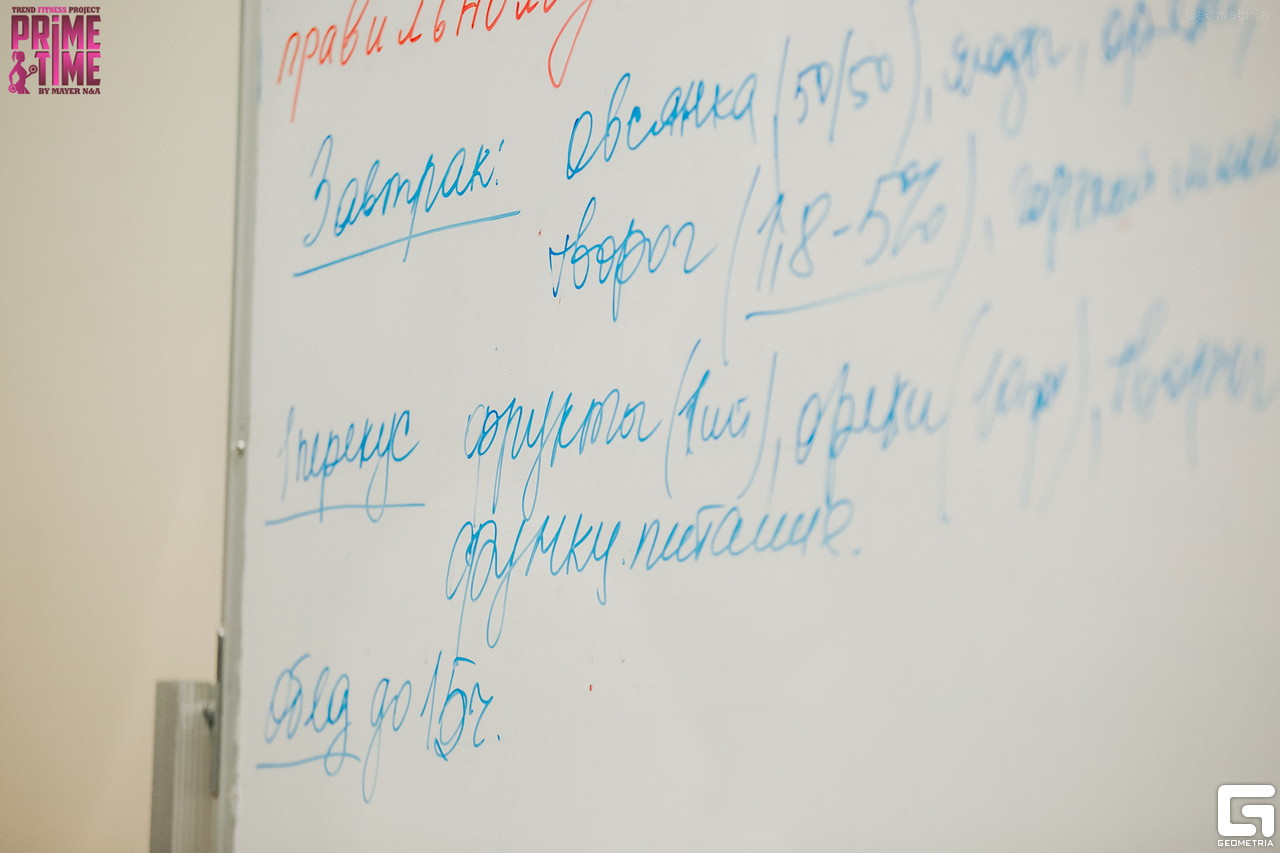 TREND FITNESS PROJECT
PRiME
TiME
BY MAYER N&A
Geometria
правильному
Завтрак: овсянка (50/50), ягоды, орехи,
творог (1,8-5%), горький шоколад
1 перекус фрукты (1 шт), орехи (10гр), творог
функц. питание.
Обед до 15ч.
GEOMETRIA